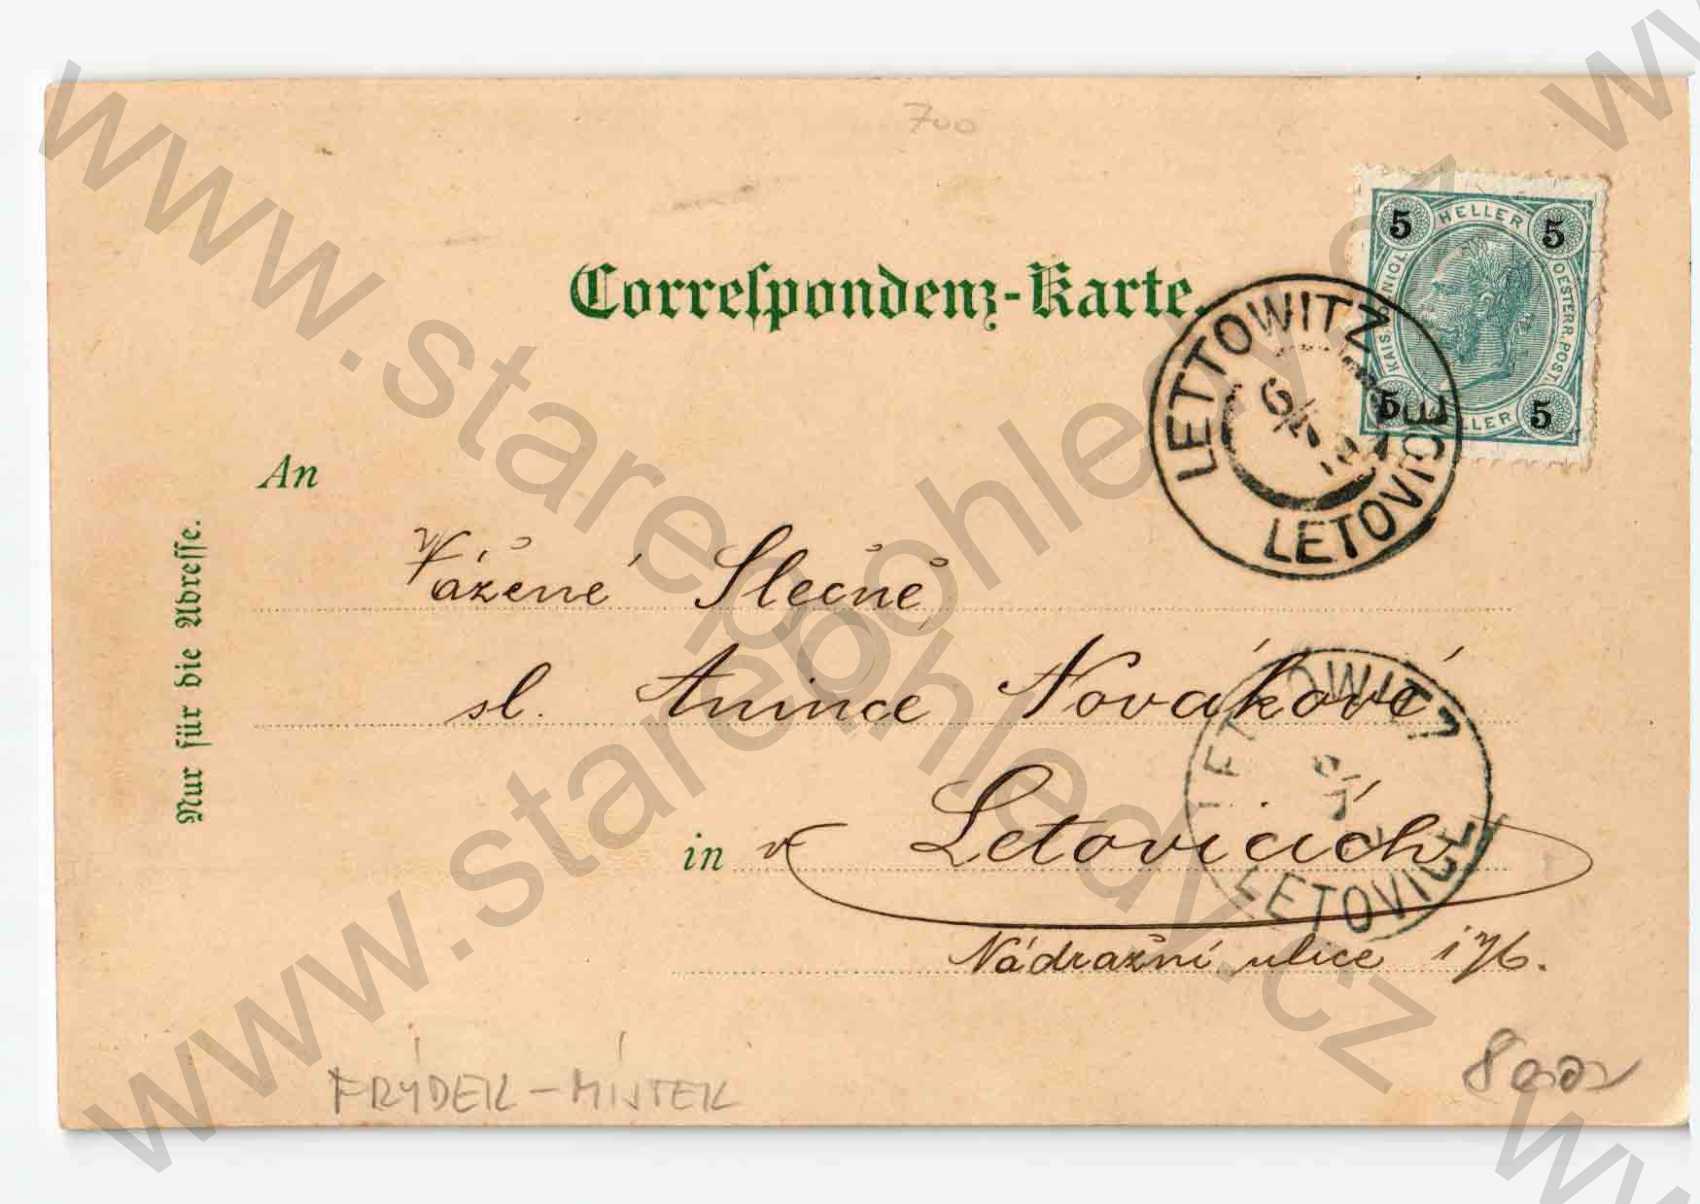 700
Correſpondenz-Karte.
5 HELLER 5
KAIS. KÖNIGL.
OESTERR. POST.
5 HELLER 5
LETTOWITZ
LETOVICE
An
Nur für die Adreſſe.
Vážené Slečně,
sl. Anince Novákové
LETTOWITZ
in v Letovicích
LETOVICE
Nádražní ulice 176.
FRÝDEK - MÍSTEK
www.starepohledy.cz
www.starepohledy.cz